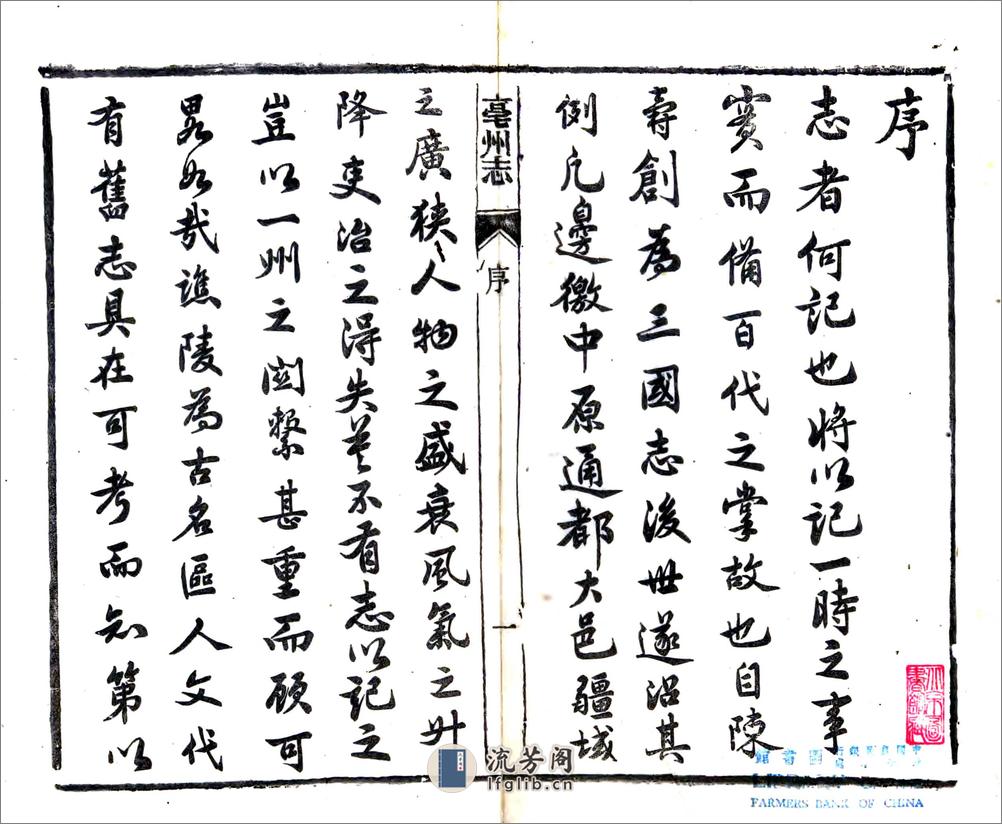 序
志者何記也將以記一時之事
實而備百代之掌故也自陳
壽創為三國志後世遂沿其
例凡邊徼中原通都大邑疆域
亳州志
序
一
之廣狹人物之盛衰風氣之升
降吏治之得失莫不有志以記之
豈以一州之關繫甚重而顧可
畧如哉譙陵為古名區人文代
有舊志具在可考而知第以
流芳阁
lfglib.cn
圖書館
FARMERS BANK OF CHINA